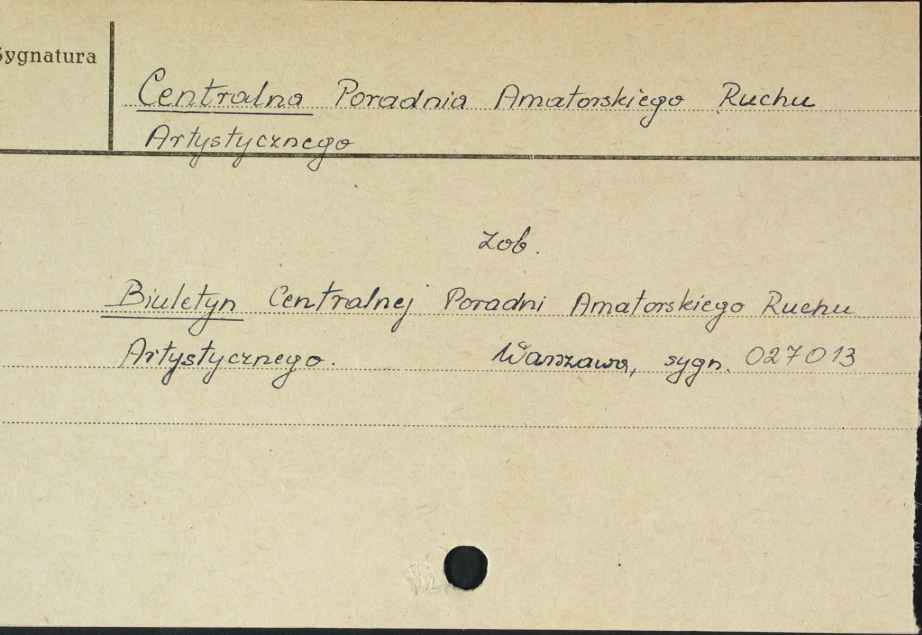 Sygnatura
Centralna Poradnia Amatorskiego Ruchu
Artystycznego
zob.
Biuletyn Centralnej Poradni Amatorskiego Ruchu
Artystycznego. Warszawa, sygn. 027013